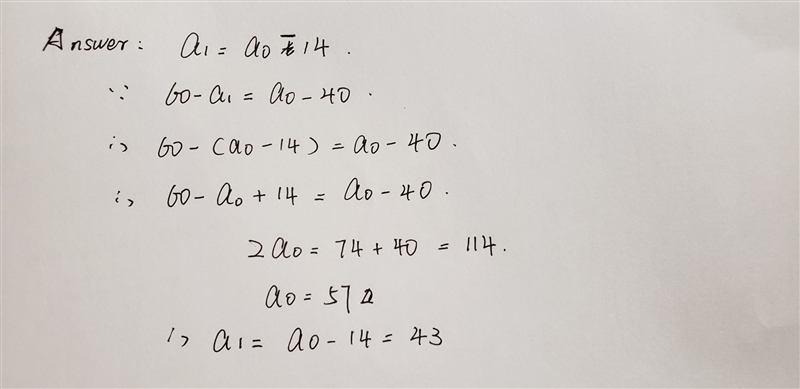 Answer: a₁ = a₀ - 14.
∵ 60 - a₁ = a₀ - 40.
∴ 60 - (a₀ - 14) = a₀ - 40.
∴ 60 - a₀ + 14 = a₀ - 40.
2a₀ = 74 + 40 = 114.
a₀ = 57
∴ a₁ = a₀ - 14 = 43